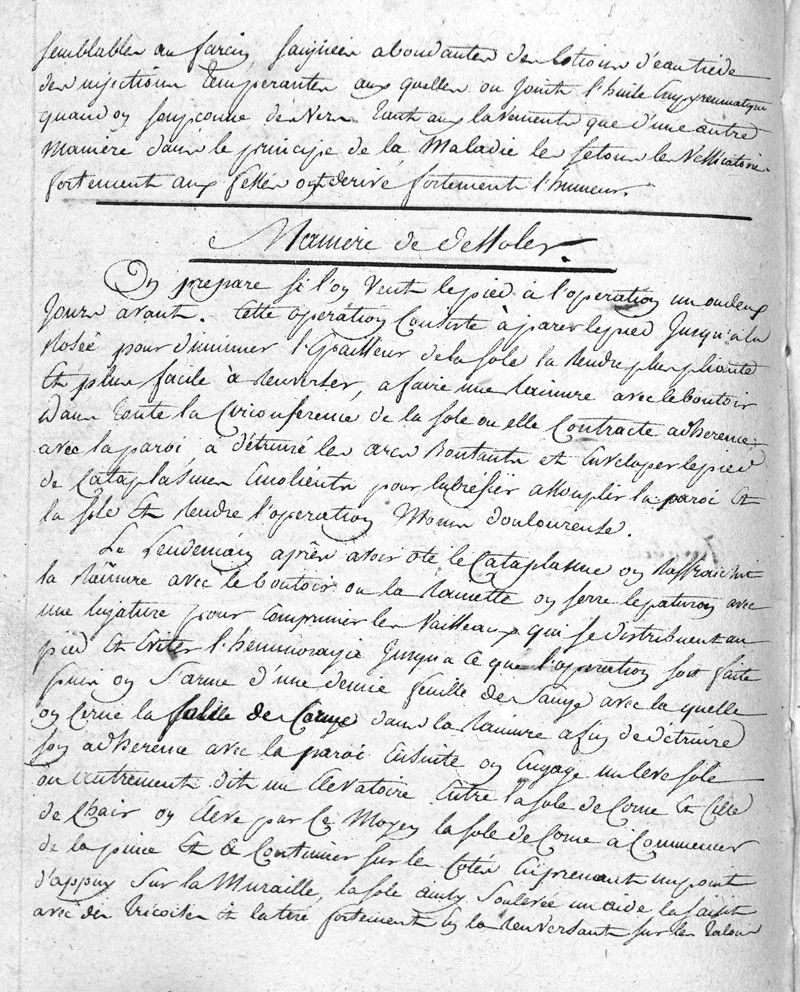 semblables au farcin, saignées abondantes des lotions d'eau tiède
des injections temperantes aux quelles on Joint l'huile Empyreumatique
quand on soupconne des Vers tant aux lavements que d'une autre
Manière dans le principe de la Maladie les setons les Vessicatoires
fortement aux fesses on derive fortement l'humeur.
Manière de dessoler.
On prepare si l'on Veut le pied à l'operation un ou deux
Jours avant. Cette operation Consiste à parer le pied Jusqu'a la
Rosée pour diminuer l'Epaisseur de la sole la Rendre plus pliante
Et plus facile à Renverser, a faire une Rainure avec le boutoir
dans toute la Circonference de la sole ou elle Contracte adherence
avec la paroi à détruire les arcs Boutants Et Enveloper le pied
de Cataplasmes Emolients pour lubrefier assouplir la paroi Et
la sole Et Rendre l'operation Moins douloureuse.
Le Lendemain après avoir oté le Cataplasme on Raffraichit
la Rainure avec le boutoir ou la Rainette on serre le paturon avec
une ligature pour Comprimer les Vaisseaux qui se distribuent au
pied Et Eviter l'hemmoragie Jusqu'a ce que l'operation soit faite
puis on s'arme d'une demie feuille de Sauge avec la quelle
on Cerne la solle de Corne dans la Rainure afin de détruire
son adherence avec la paroi Ensuite on Engage un leve sole
ou autrement dit un Elevatoire Entre la sole de Corne Et Celle
de Chair on Eleve par Ce Moyen la sole de Corne à Commencer
de la pince Et à Continuer sur les Cotés En prenant un point
d'appuy sur la Muraille, la sole Soulevée un aide la saisit
avec des Tricoises Et la tire fortement En la Renversant sur les Talons